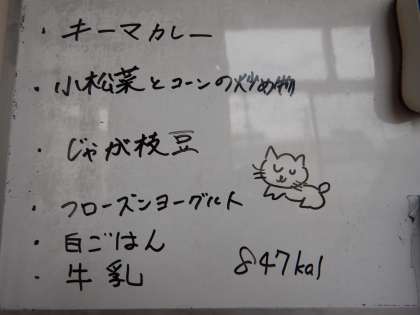 ・キーマカレー
・小松菜とコーンの炒め物
・じゃが枝豆
・フローズンヨーグルト
・白ごはん
・牛乳 847kal